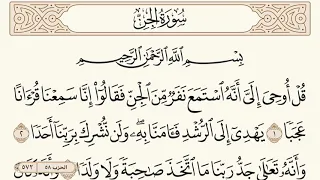 سُورَةُ الجِنِّ
بِسْمِ ٱللَّهِ ٱلرَّحْمَٰنِ ٱلرَّحِيمِ
قُلْ أُوحِىَ إِلَىَّ أَنَّهُ ٱسْتَمَعَ نَفَرٌ مِّنَ ٱلْجِنِّ فَقَالُوٓا۟ إِنَّا سَمِعْنَا قُرْءَانًا
عَجَبًا ١ يَهْدِىٓ إِلَى ٱلرُّشْدِ فَـَٔامَنَّا بِهِۦ ۖ وَلَن نُّشْرِكَ بِرَبِّنَآ أَحَدًا ٢
وَأَنَّهُۥ تَعَٰلَىٰ جَدُّ رَبِّنَا مَا ٱتَّخَذَ صَٰحِبَةً وَلَا وَلَدًا
الحزب ٥٨ ٥٧٢